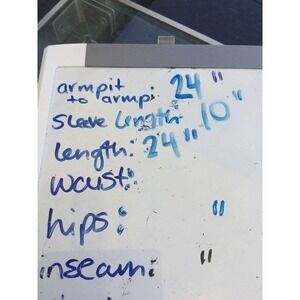 armpit
to armp: 24 "
sleeve length: 10 "
length: 24 "
waist:
hips: "
inseam: "